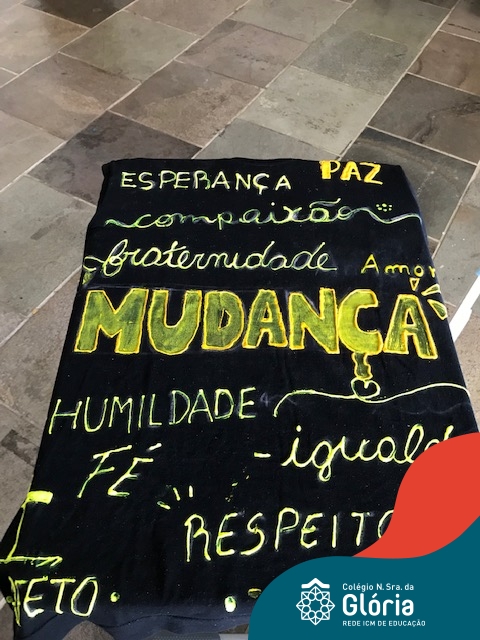 ESPERANÇA PAZ
compaixão
fraternidade Amor
MUDANÇA
HUMILDADE
FÉ - iguald
RESPEITO
ETO.
Colégio N. Sra. da
Glória
REDE ICM DE EDUCAÇÃO